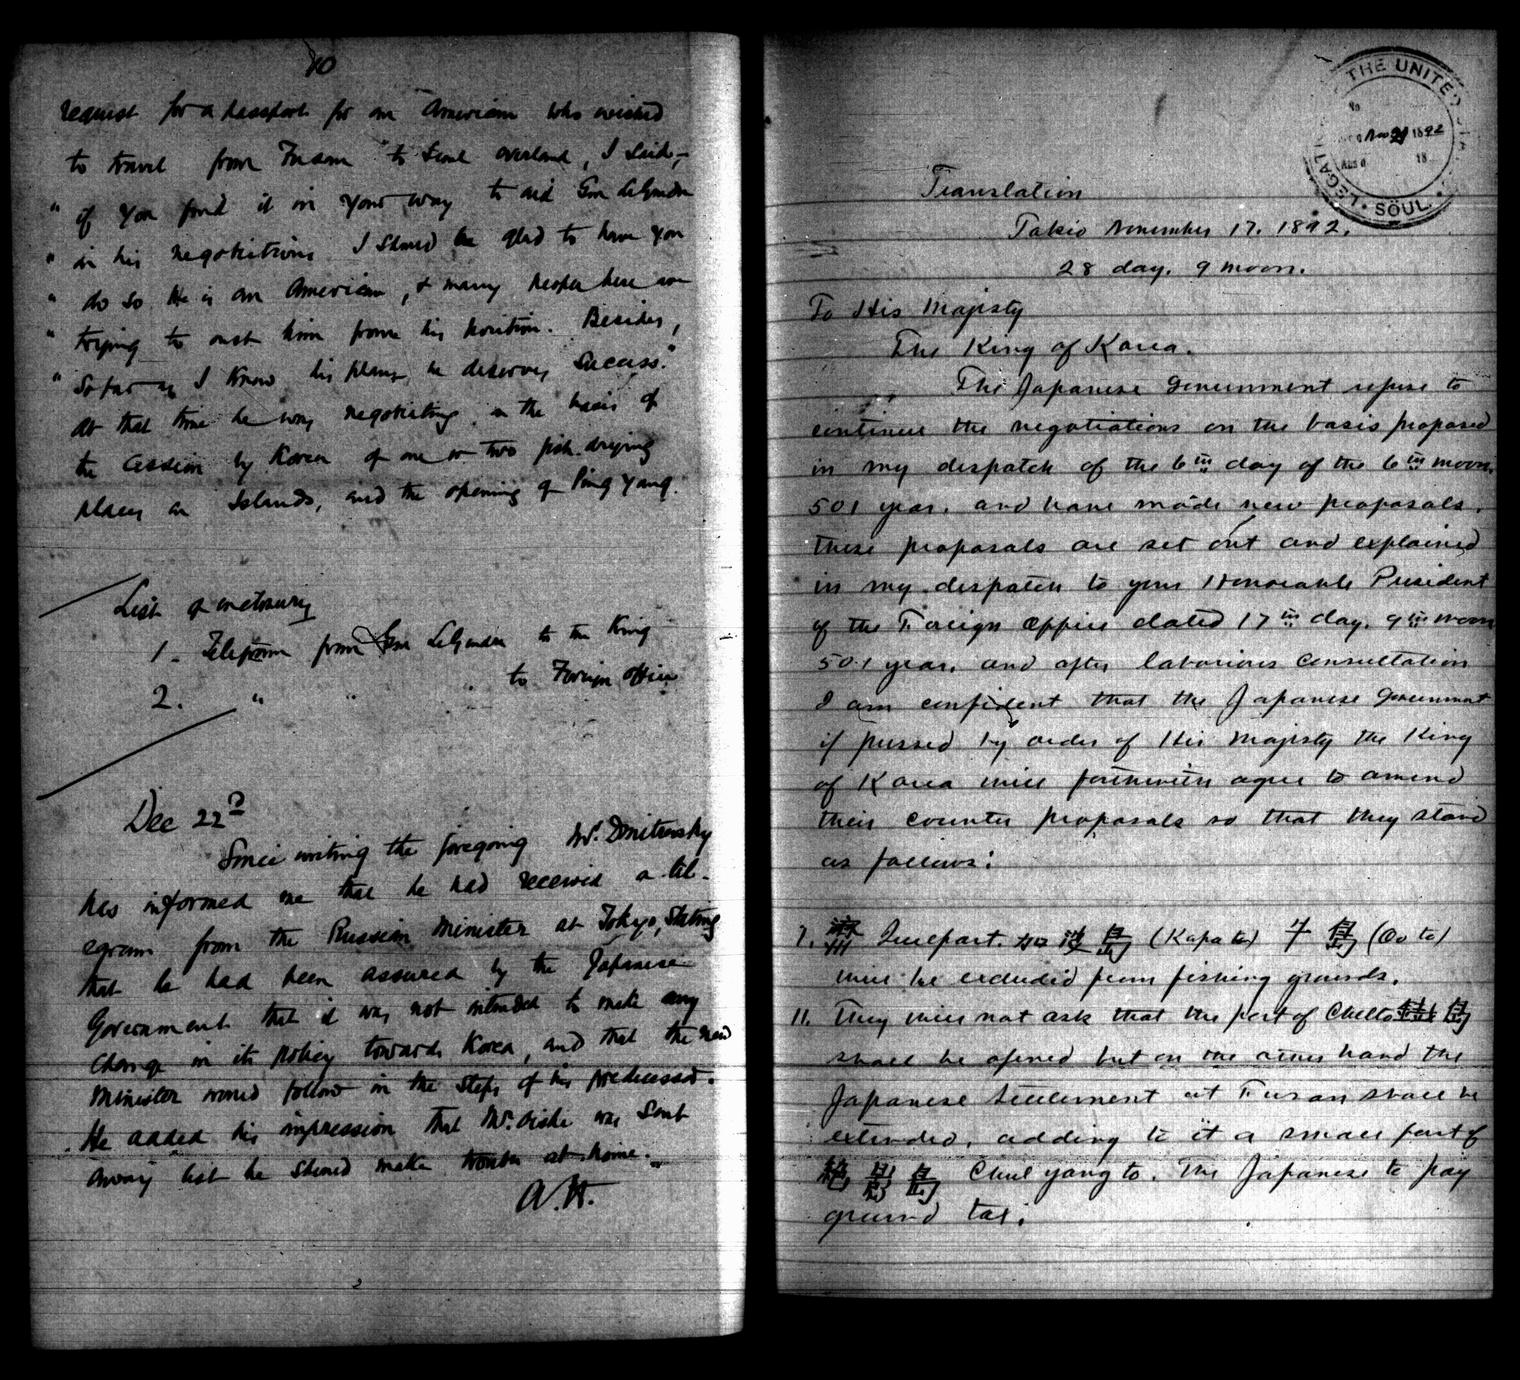 10
request for a passport for an American who wished
to travel from Fusan to Seoul overland, I said,—
" if you find it in your way to aid Gen LeGendre
" in his negotiations I should be glad to have you
" do so. He is an American, & many people here are
" trying to oust him from his position. Besides,
" so far as I know his plans, he deserves success."
At that time he was negotiating on the basis of
the cession by Korea of one or two fish drying
places on Islands, and the opening of Ping Yang.
List of enclosures
1. Telegram from Gen LeGendre to the King
2. " " to Foreign Office
Dec 22d
Since writing the foregoing Mr. Dmitrevsky
has informed me that he had received a tel-
egram from the Russian Minister at Tokyo, stating
that he had been assured by the Japanese
Government that it was not intended to make any
change in its policy towards Korea, and that the new
Minister would follow in the steps of his predecessor.
He added his impression that Mr. Oishi was sent
away lest he should make trouble at home.
A.H.
THE UNITED
No
Nov 29 1892
Ans d 18
LEGAT
SÖUL
Translation
Tokio November 17. 1892.
28 day. 9 moon.
To His Majesty
The King of Korea.
The Japanese Government refuse to
continue the negotiations on the basis proposed
in my despatch of the 6th day of the 6th moon,
501 year. and have made new proposals.
these proposals are set out and explained
in my despatch to your Honorable President
of the Foreign Office dated 17th day. 9th moon
501 year. and after laborious consultation
I am confident that the Japanese Government
if pressed by order of His Majesty the King
of Korea will forthwith agree to amend
their counter proposals so that they stand
as follows:
1. 濟州 Quelpart. 加波島 (Kapa to) 牛島 (Oo to)
will be excluded from fishing grounds.
11. They will not ask that the port of Chelto 鐵島
shall be opened but on the other hand the
Japanese Settlement at Fusan shall be
extended, adding to it a small part of
絶影島 Chul yang to. The Japanese to pay
ground tax.